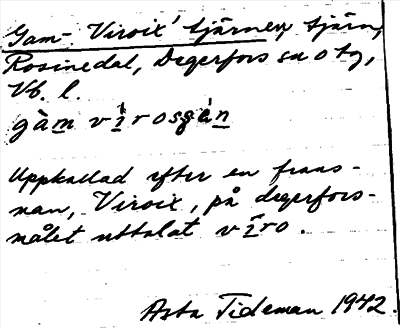 Gam- Viroix' tjärnen, tjärn,
Rosinedal, Degerfors sn o tg,
Vb. l.
gàm virosgàn
Uppkallad efter en frans-
man, Viroix, på degerfors-
målet uttalat viro.
Asta Tideman 1942.